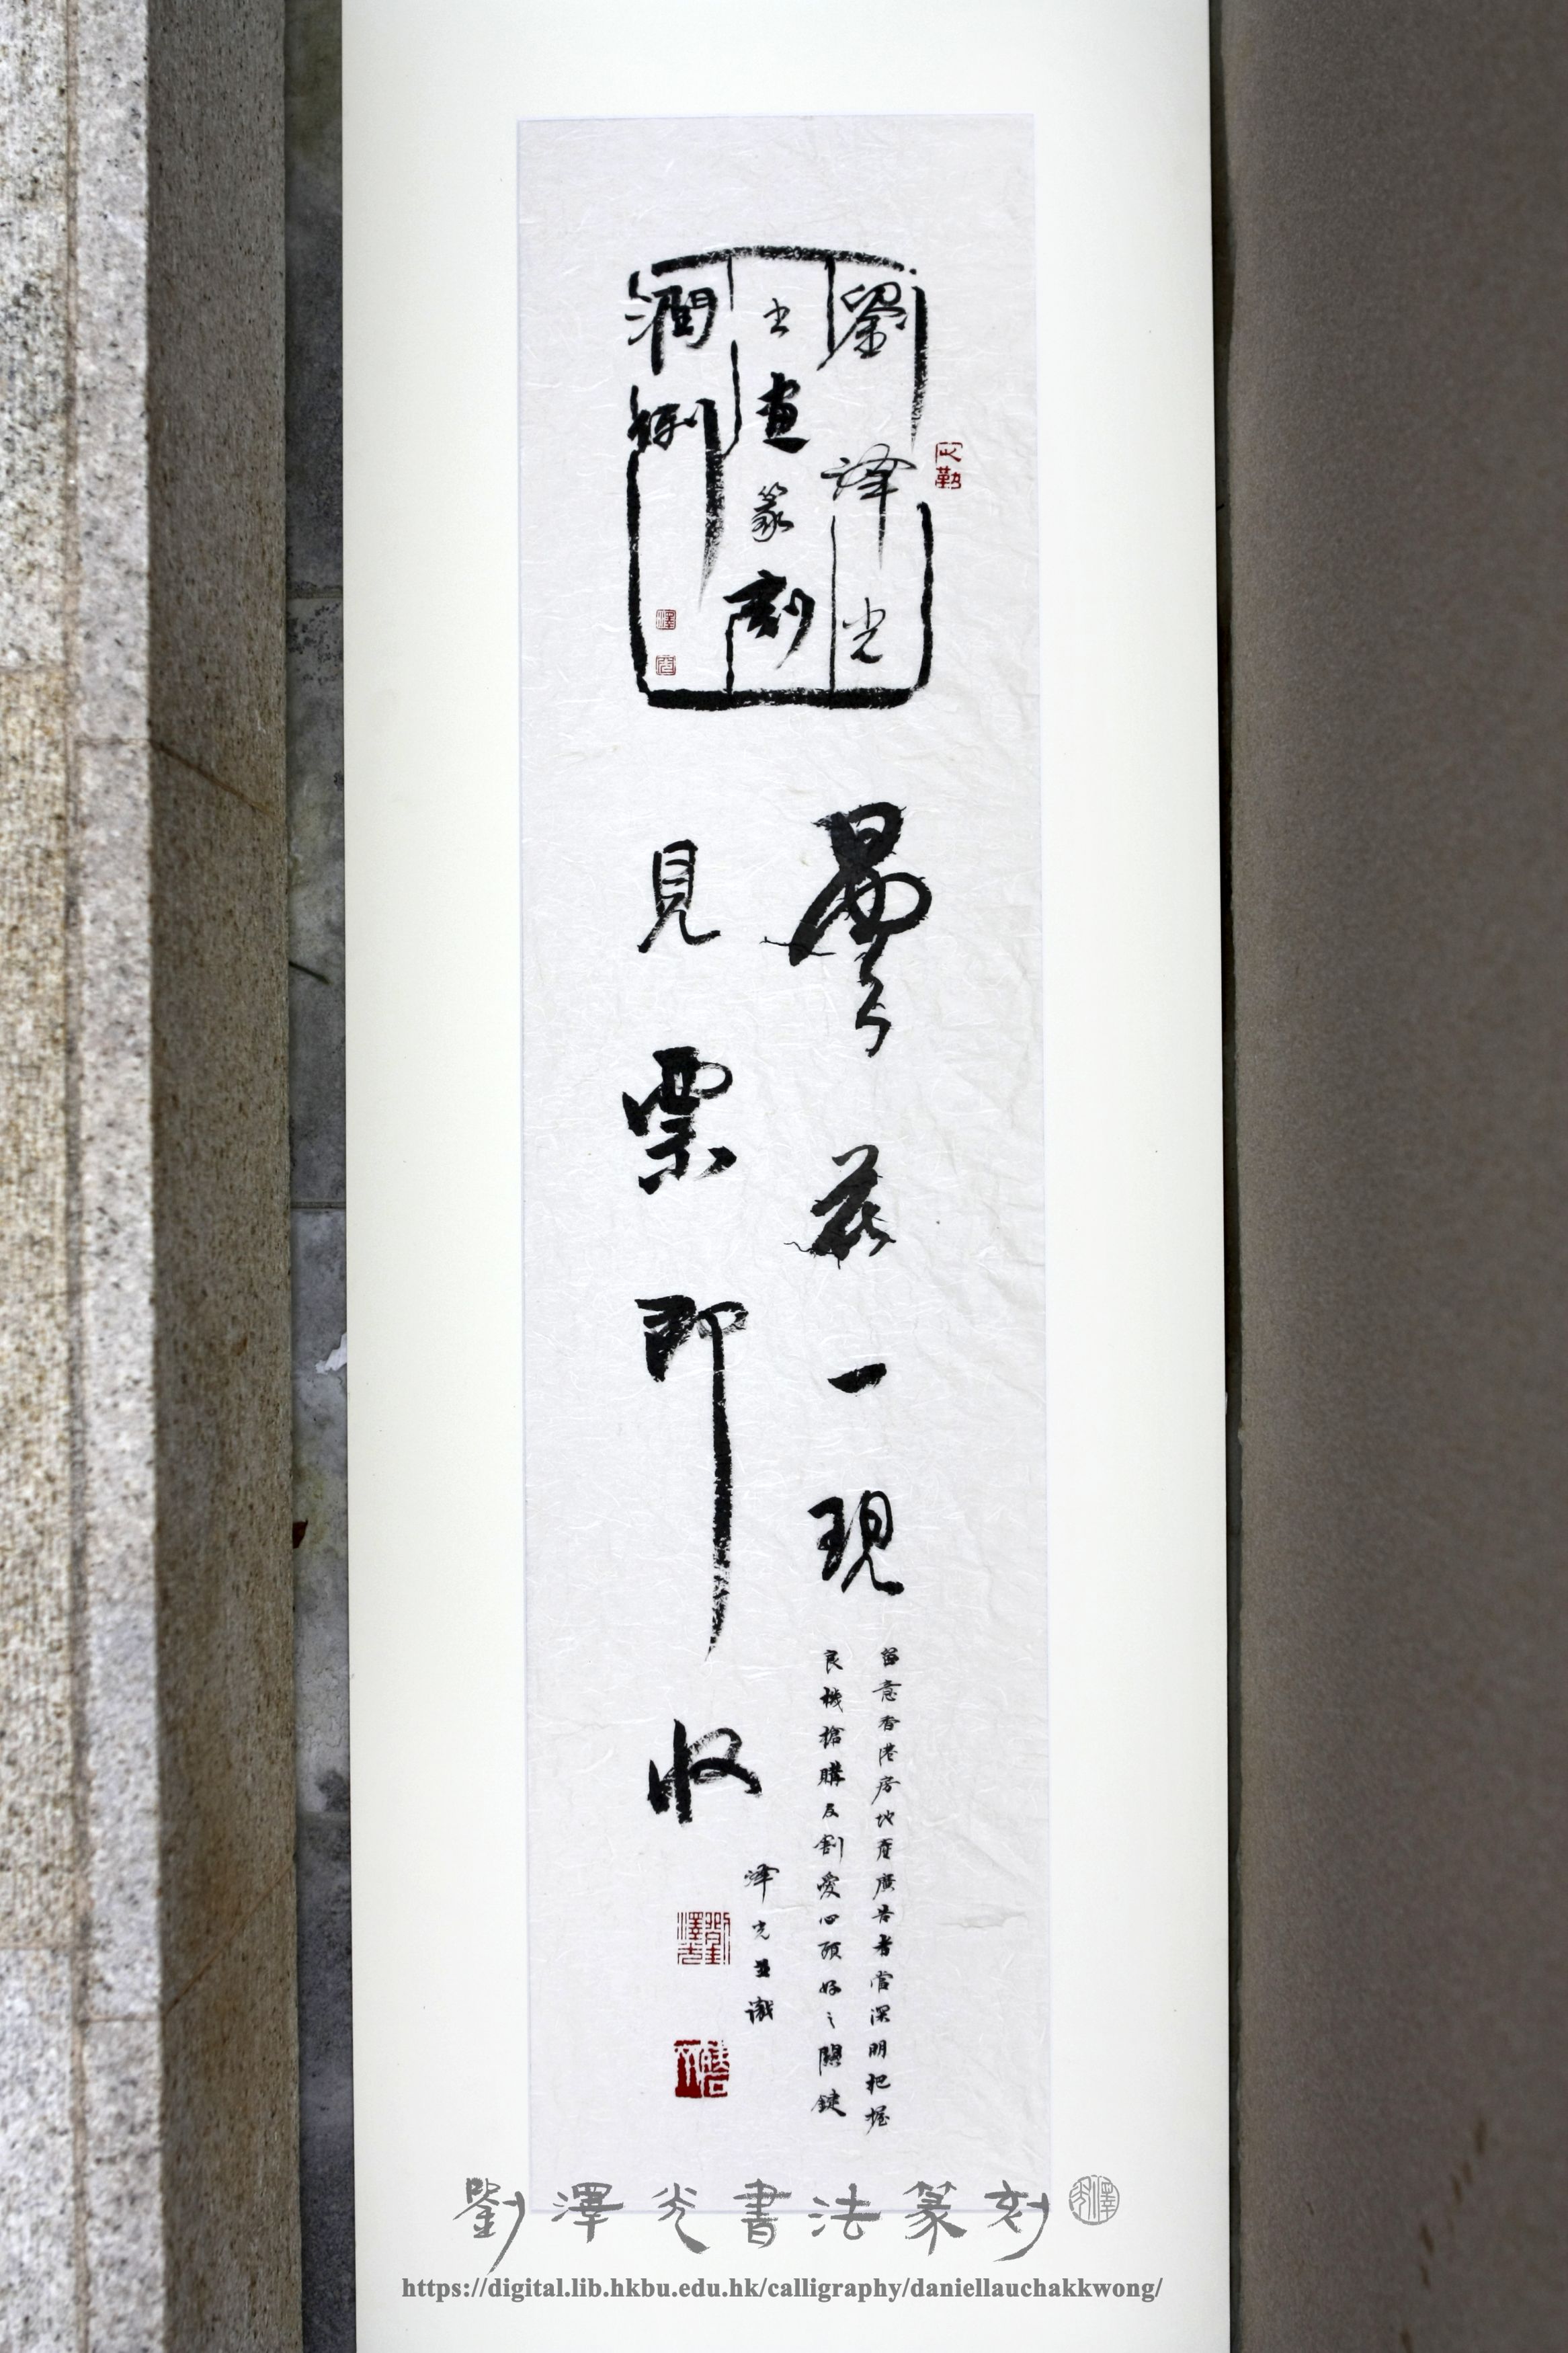 劉澤光
書畫篆刻
潤例
澤
光
曇花一現
留意香港房地產廣告者當深明把握
良機搶購及割愛心頭好之關鍵
見票即收
澤光並識
劉澤光
劉澤光書法篆刻
澤光
https://digital.lib.hkbu.edu.hk/calligraphy/daniellauchakkwong/